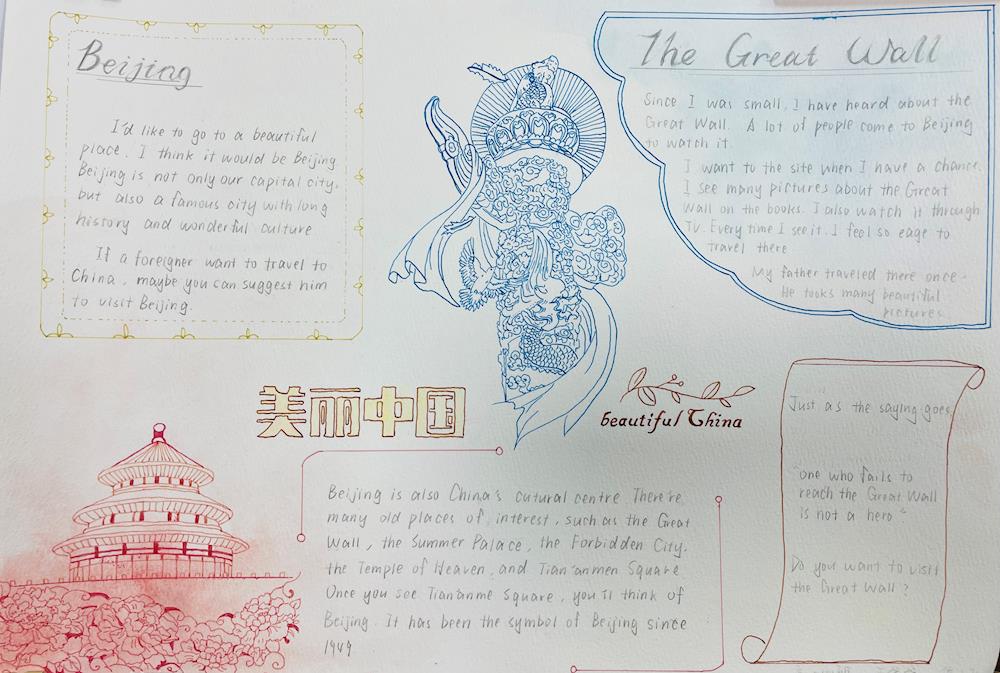 Beijing
I'd like to go to a beautiful
place. I think it would be Beijing
Beijing is not only our capital city,
but also a famous city with long
history and wonderful culture
If a foreigner want to travel to
China, maybe you can suggest him
to visit Beijing.
The Great Wall
Since I was small, I have heard about the
Great Wall. A lot of people come to Beijing
to watch it.
I want to the site when I have a chance.
I see many pictures about the Great
Wall on the books. I also watch it through
TV. Every time I see it, I feel so eage to
travel there
My father traveled there once.
He tooks many beautiful
pictures
美丽中国
beautiful China
Beijing is also China's cutural centre There're
many old places of interest, such as the Great
Wall, the Summer Palace, the Forbidden City.
the Temple of Heaven, and Tian'anmen Square
Once you see Tian'anme Square, you'll think of
Beijing. It has been the symbol of Beijing since
1949
Just as the saying goes
"one who fails to
reach the Great Wall
is not a hero"
Do you want to visit
the Great Wall?